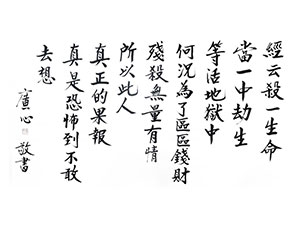 經云殺一生命
當一中劫生
等活地獄中
何況為了區區錢財
殘殺無量有情
所以此人
真正的果報
真是恐怖到不敢
去想
廣心
敬書